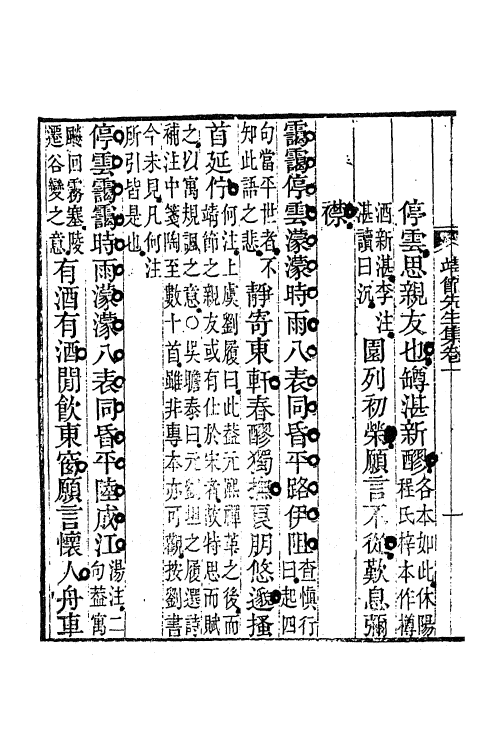 靖節先生集卷一
停雲思親友也罇湛新醪各本如此休陽程氏梓本作樽
酒新湛李注湛讀曰沉園列初榮願言不從歎息彌
襟
靄靄停雲濛濛時雨八表同昏平路伊阻查愼行曰起四
句當平世者不知此語之悲靜寄東軒春醪獨撫良朋悠邈搔
首延佇何注上虞劉履曰此蓋元熙禪革之後而靖節之親友或有仕於宋者故特思而賦
之以寓規諷之意○吳瞻泰曰元劉坦之履選詩補注中箋陶至數十首雖非專本亦可觀按劉書
今未見凡何注所引皆是也
停雲靄靄時雨濛濛八表同昏平陸成江湯注二句蓋寓
飇回霧塞陵遷谷變之意有酒有酒閒飲東窗願言懷人舟車